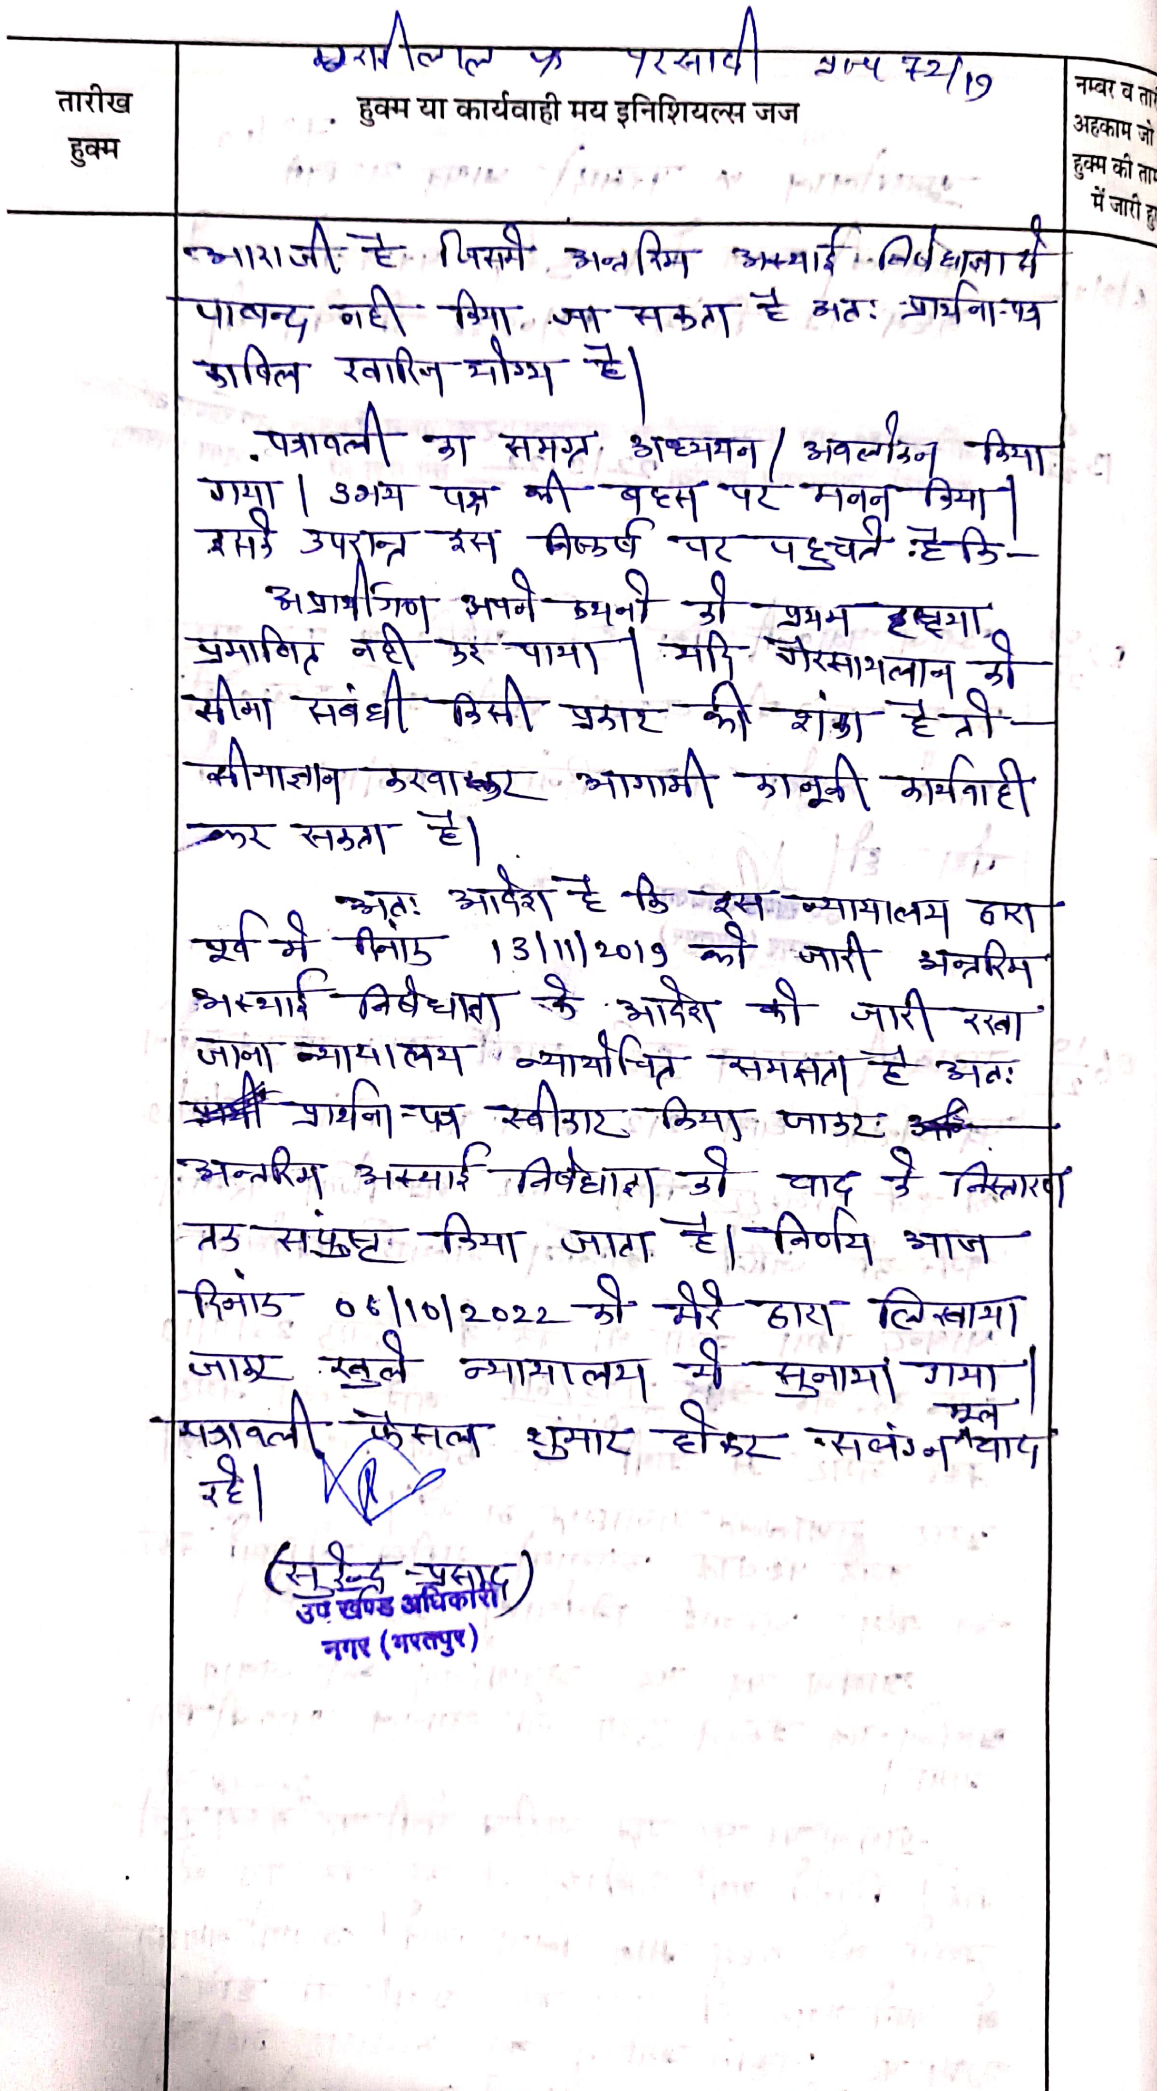 परसादी 72/19
तारीख
हुक्म
हुक्म या कार्यवाही मय इनिशियल्स जज
नम्बर व तारी
अहकाम जो
हुक्म की ताम
में जारी हु
आराजी है जिसमें अन्तरिम अस्थाई निषेधाज्ञा से
पाबन्द नही किया जा सकता है अतः प्रार्थना-पत्र
काबिल खारिज योग्य है।
पत्रावली का समग्र अध्ययन/अवलोकन किया
गया। उभय पक्ष की बहस पर मनन किया।
इसके उपरान्त इस निष्कर्ष पर पहुचते है कि-
अप्रार्थीगण अपने कथनो को प्रथम दृष्टया
प्रमाणित नही कर पाया। यदि गैरसायलान को
सीमा संबंधी किसी प्रकार की शंका है तो
सीमाज्ञान करवाकर आगामी कानूनी कार्यवाही
कर सकता है।
अतः आदेश है कि इस न्यायालय द्वारा
पूर्व मे दिनांक 13/11/2019 को जारी अन्तरिम
अस्थाई निषेधाज्ञा के आदेश को जारी रखा
जाना न्यायालय न्यायोचित समझता है अतः
प्रार्थना-पत्र स्वीकार किया जाकर
अन्तरिम अस्थाई निषेधाज्ञा को वाद के निस्तारण
तक संपुष्ट किया जाता है। निर्णय आज
दिनांक 06/10/2022 को मेरे द्वारा लिखाया
जाकर खुले न्यायालय मे सुनाया गया।
पत्रावली फैसल शुमार होकर सलंग्न मूल वाद
रहे।
(सुरेन्द्र प्रसाद)
उप खण्ड अधिकारी
नगर (भरतपुर)